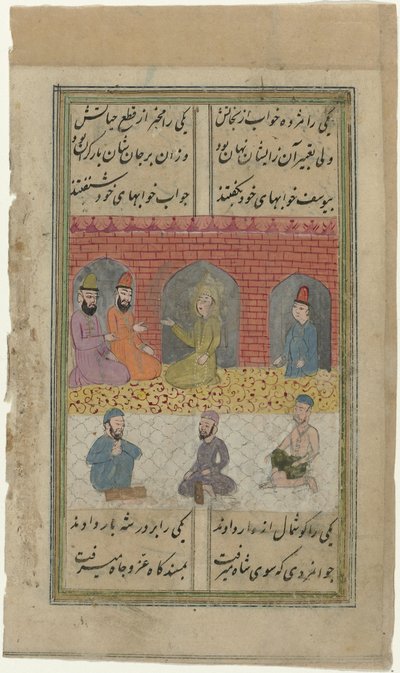 یکی را مژده ده خواب از نجاتش یکی را مخبر از قطع حیاتش
ولی تعبیر آن زایشان نهان بود وزان بر جانشان بار گران بود
بیوسف خوابهای خود بگفتند جواب خوابهای خود شنفتند
یکی را گوشمال از دار دادند یکی را بر در شه بار دادند
جوانمردی که سوی شاه میرفت بمسندگاه عز و جاه میرفت